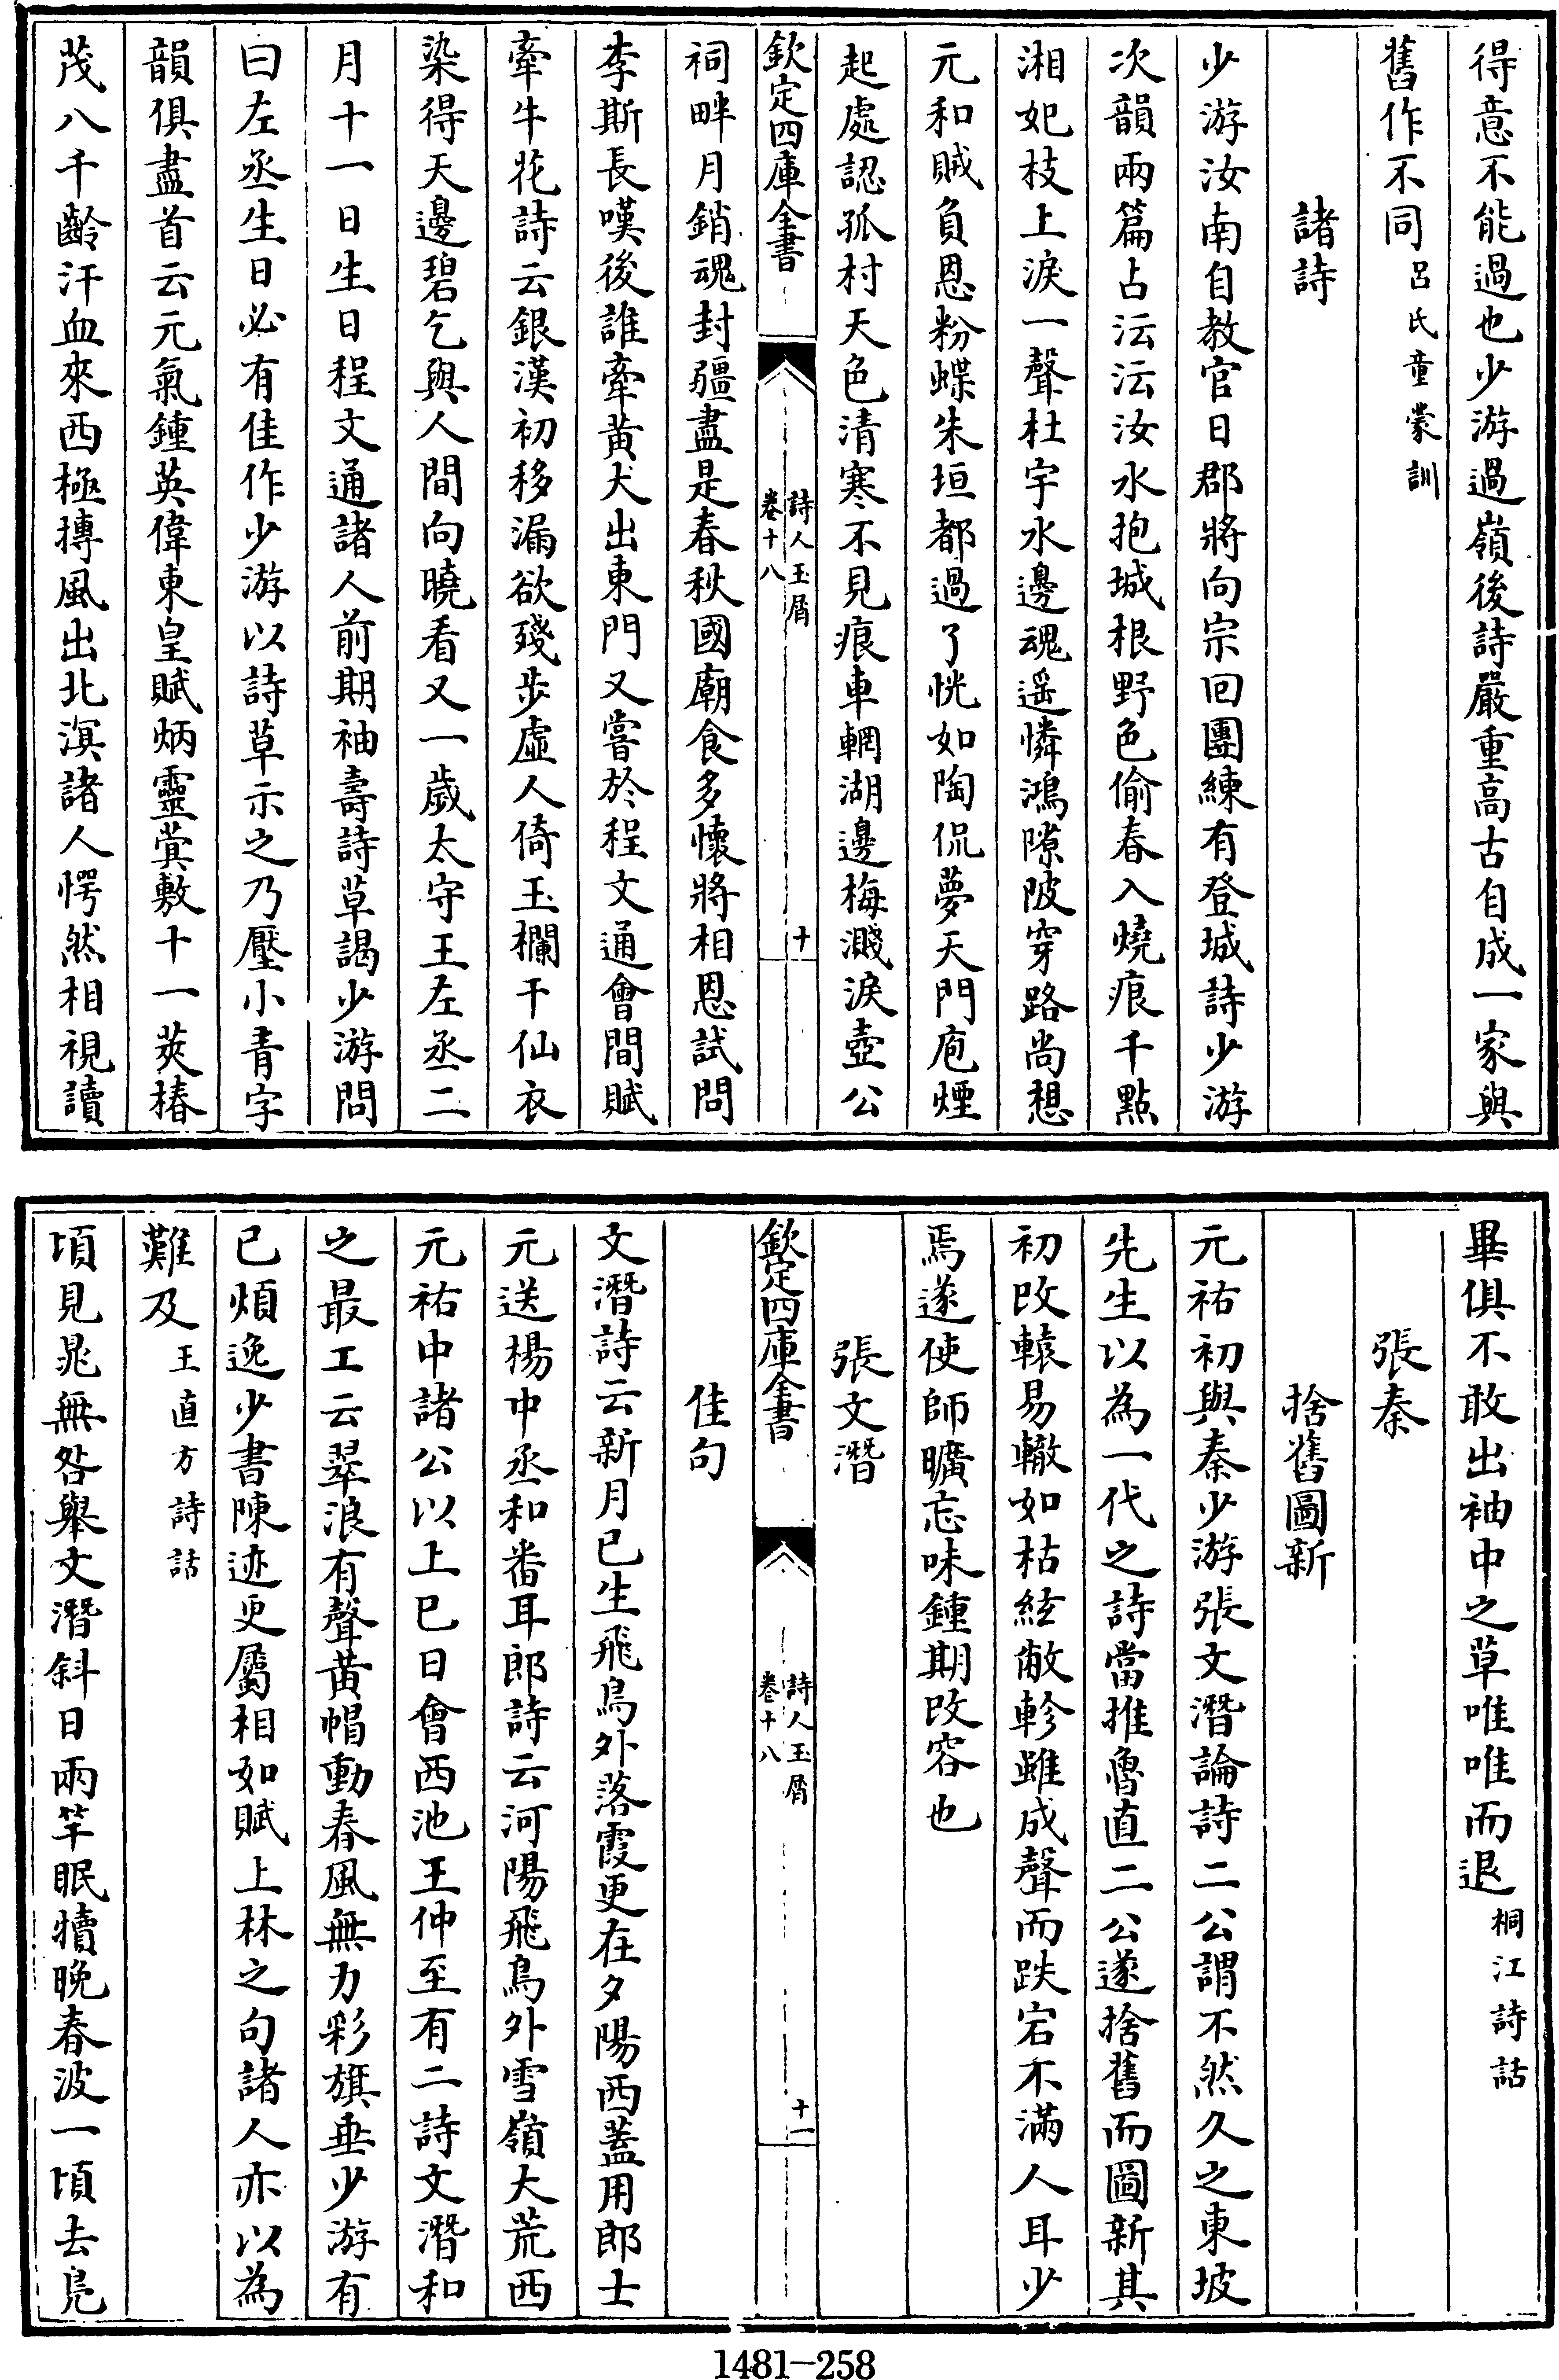 得意不能過也少游過嶺後詩嚴重高古自成一家與
舊作不同呂氏童蒙訓
諸詩
少游汝南自教官日郡將向宗回團練有登城詩少游
次韻兩篇占沄沄汝水抱城根野色偷春入燒痕千點
湘妃枝上淚一聲杜宇水邊魂遥憐鴻隙陂穿路尚想
元和賊負恩粉蝶朱垣都過了恍如陶侃夢天門庖煙
起處認孤村天色清寒不見痕車輞湖邊梅濺淚壺公
欽定四庫全書
詩人玉屑
卷十八
十
祠畔月銷魂封疆盡是春秋國廟食多懷將相恩試問
李斯長嘆後誰牽黄犬出東門又嘗於程文通會間賦
牽牛花詩云銀漢初移漏欲殘步虛人倚玉欄干仙衣
染得天邊碧乞與人間向曉看又一歲太守王左丞二
月十一日生日程文通諸人前期袖壽詩草謁少游問
曰左丞生日必有佳作少游以詩草示之乃壓小青字
韻俱盡首云元氣鍾英偉東皇賦炳靈蓂敷十一莢椿
茂八千齡汗血來西極摶風出北溟諸人愕然相視讀
畢俱不敢出袖中之草唯唯而退桐江詩話
張秦
捨舊圖新
元祐初與秦少游張文潛論詩二公謂不然久之東坡
先生以為一代之詩當推魯直二公遂捨舊而圖新其
初改轅易轍如枯絃敝軫雖成聲而跌宕不滿人耳少
焉遂使師曠忘味鍾期改容也
張文潛
欽定四庫全書
詩人玉屑
卷十八
十一
佳句
文潛詩云新月已生飛鳥外落霞更在夕陽西蓋用郎士
元送楊中丞和番耳郎詩云河陽飛鳥外雪嶺大荒西
元祐中諸公以上巳日會西池王仲至有二詩文潛和
之最工云翠浪有聲黄帽動春風無力彩旗垂少游有
已煩逸少書陳迹更屬相如賦上林之句諸人亦以為
難及王直方詩話
頃見晁無咎舉文潛斜日兩竿眠犢晚春波一頃去鳬
1481-258